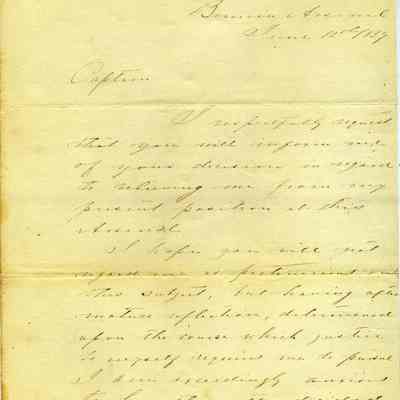 Benicia Arsenal
June 12th/857
Captain
I respectfully request
that you will inform me
of your decision in regard
to relieving me from my
present position at this
Arsenal.
I hope you will not
regard me as pertinacious
this subject, but having after
mature reflection, determined
upon the course which justice
to myself requires me to pursue
I am exceedingly anxious
to